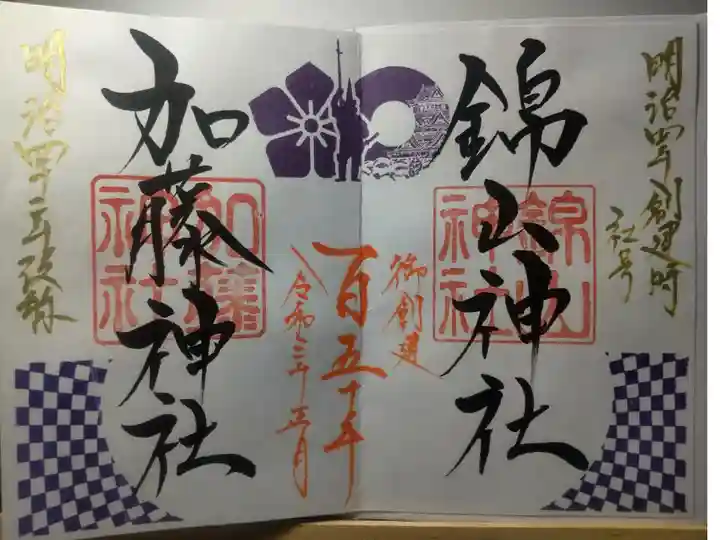 明治四年創建時
社号
錦山神社
錦山
神社
御創建
百五十年
令和三年五月
加藤神社
加藤
神社
明治四十二年改称